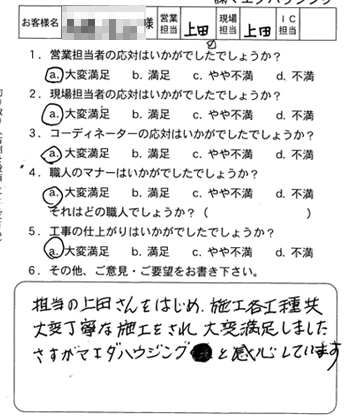 お客様名 様 営業担当 上田 現場担当 上田 IC担当
1．営業担当者の応対はいかがでしたでしょうか？
a. 大変満足 b. 満足 c. やや不満 d. 不満
2．現場担当者の応対はいかがでしたでしょうか？
a. 大変満足 b. 満足 c. やや不満 d. 不満
3．コーディネーターの応対はいかがでしたでしょうか？
a. 大変満足 b. 満足 c. やや不満 d. 不満
4．職人のマナーはいかがでしたでしょうか？
a. 大変満足 b. 満足 c. やや不満 d. 不満
それはどの職人でしょうか？（ ）
5．工事の仕上がりはいかがでしたでしょうか？
a. 大変満足 b. 満足 c. やや不満 d. 不満
6．その他、ご意見・ご要望をお書き下さい。
担当の上田さんをはじめ、施工各工種共
大変丁寧な施工をされ 大変満足しました
さすがマエダハウジング と感心しています